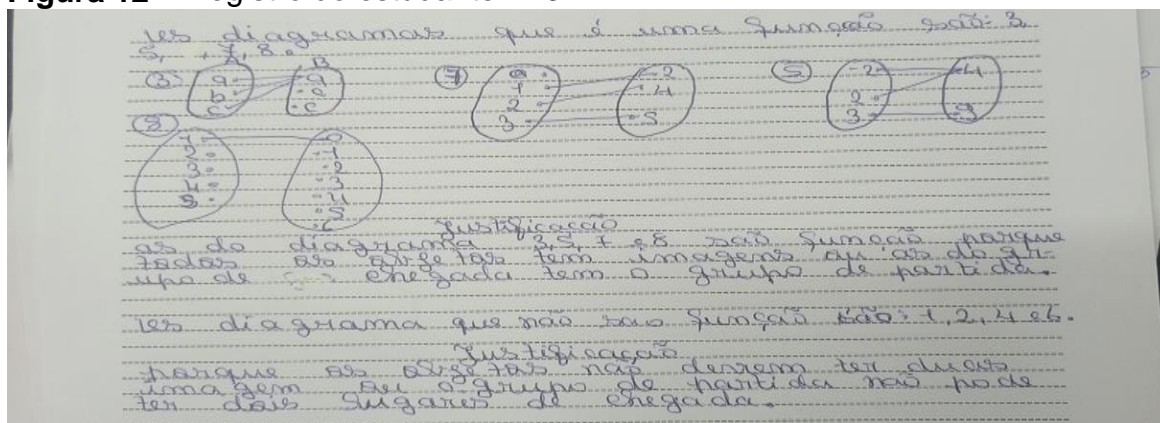 diagramas que é uma função são: 3,
5, 7, 8.
A B
(3) a b c a e c (7) 0 1 2 3 2 4 5 (5) 2 3 4 9
(8)
1 2 3 4 5 0 1 2 3 4 5
Justificação
as do diagrama 3,5,7 e 8 são função porque
todos os tem imagens ou as do gr-
upo de chegada tem o grupo de partida.
diagrama que não são função são: 1, 2, 4 e 6.
Justificação
porque os não devem ter duas
imagem ou o grupo de partida não pode
ter dois lugares de chegada.